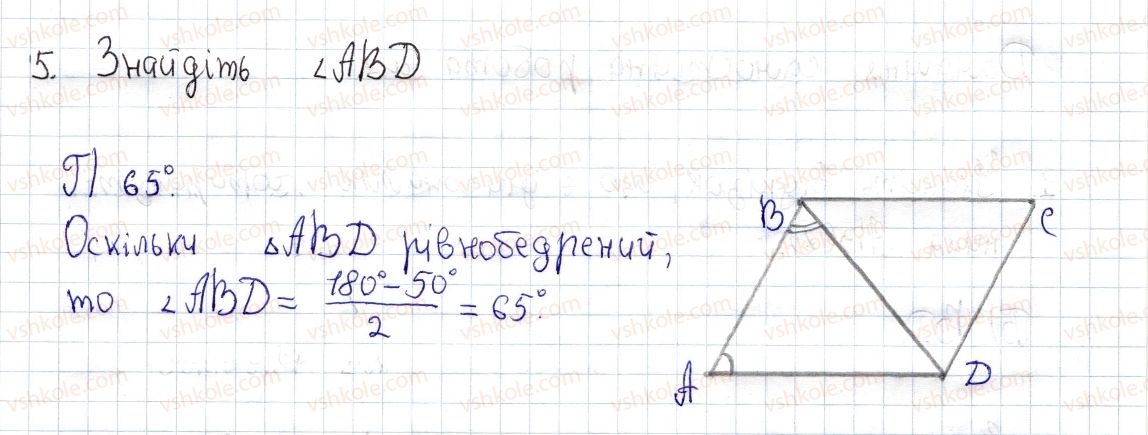 5. Знайдіть ∠ABD
П) 65°.
Оскільки ΔABD рівнобедрений,
то ∠ABD = (180° - 50°)/2 = 65°.
B C
A D